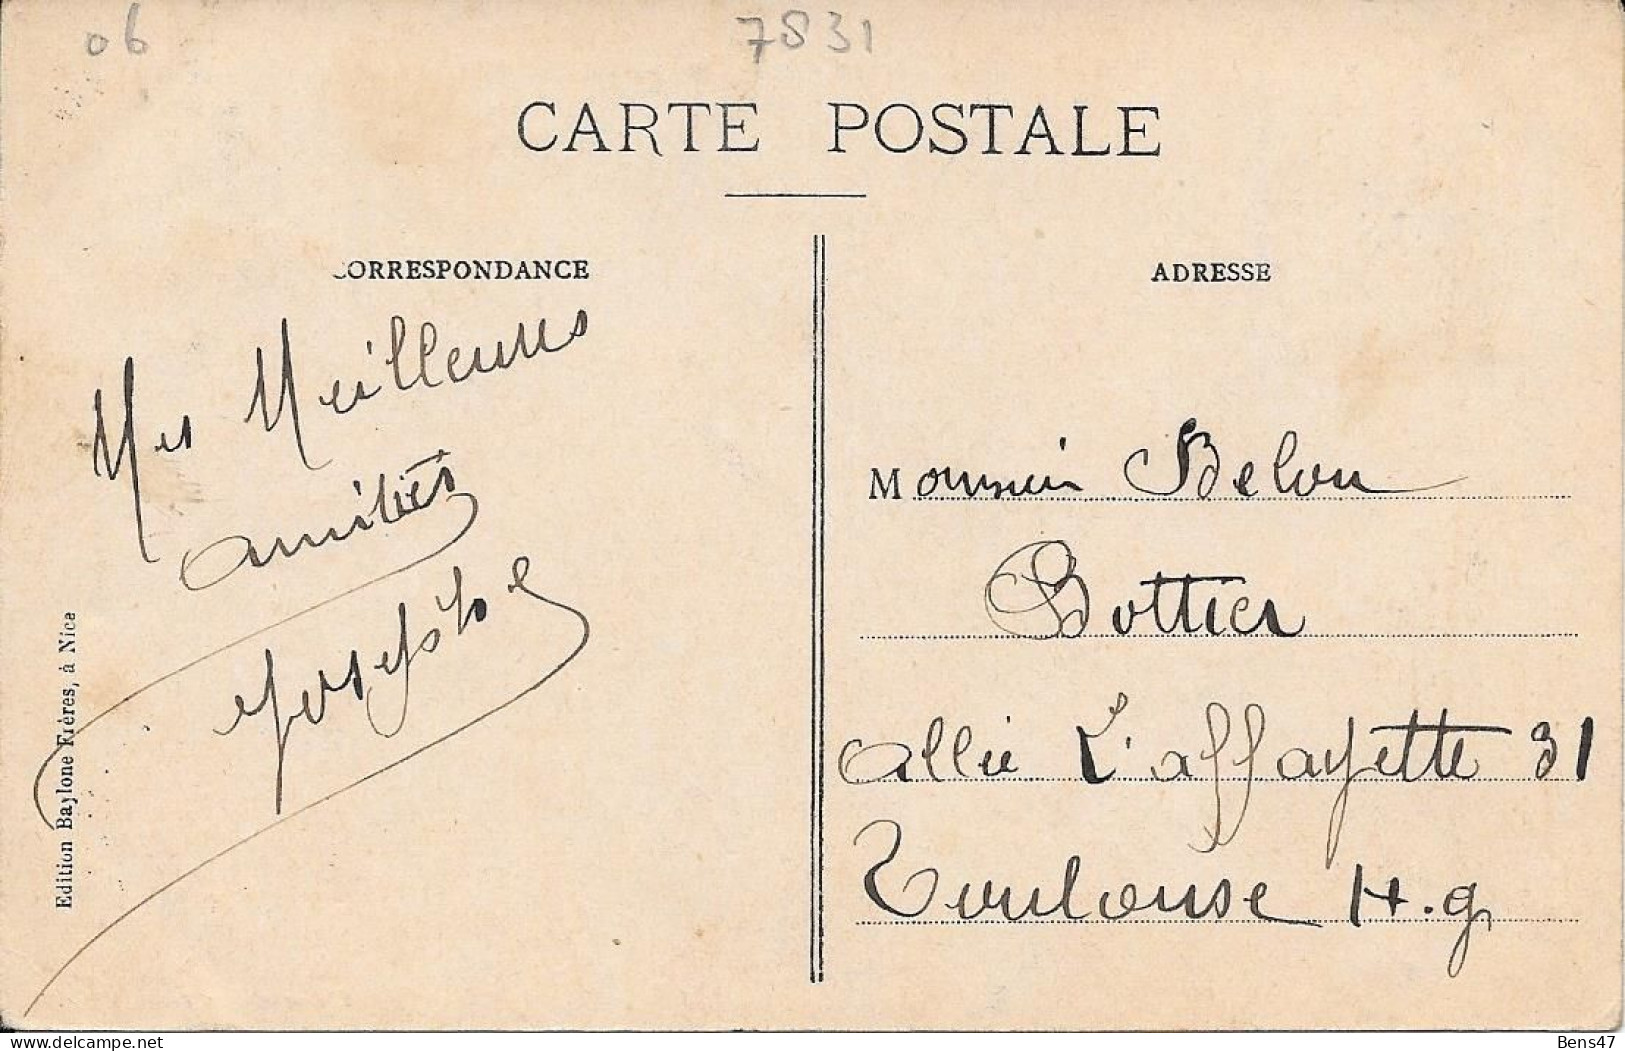 06
7831
CARTE POSTALE
CORRESPONDANCE
Mes Meilleures
amitiés
Joseph
Edition Baylone Frères, à Nice
ADRESSE
Monsieur Belou
Bottier
allée L'affayette 31
Toulouse H.g
delcampe.net
Bens47